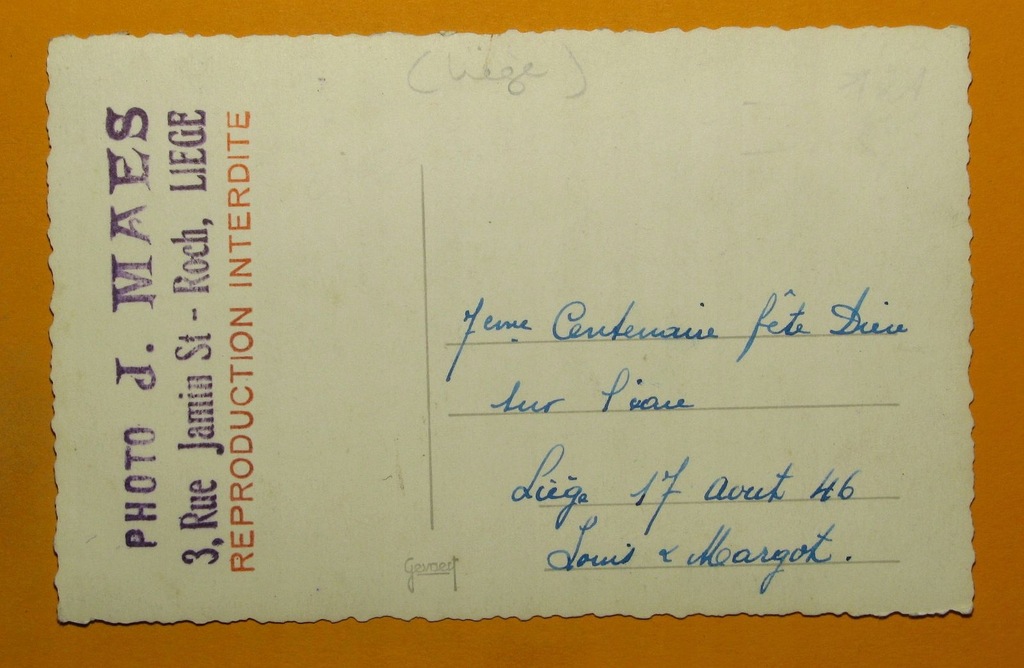 (Liège)
PHOTO J. MAES
3, Rue Jamin St - Roch, LIEGE
REPRODUCTION INTERDITE
7eme Centenaire fête Dieu
sur l'eau
Liège 17 aout 46
Louis & Margot.
Gevaert